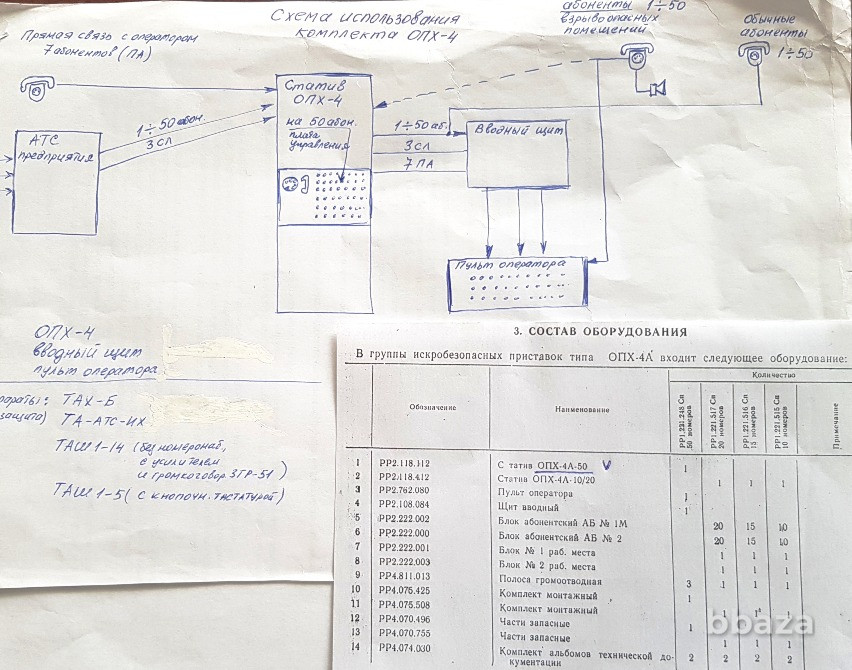 Схема использования
комплекта ОПХ-4
абоненты 1÷50
взрывоопасных
помещений
Обычные
абоненты
1÷50
Прямая связь с оператором
7 абонентов (ПА)
Статив
ОПХ-4
на 50 абон.
плата
управления
АТС
предприятия
1÷50 абон.
3 СЛ
1÷50 аб.
3 СЛ
7 ПА
Вводный щит
Пульт оператора
ОПХ-4
вводный щит
пульт оператора
параты: ТАХ-Б
защита) ТА-АТС-ИХ
ТАШ 1-14 (без номеронаб,
с усилителем
и громкоговор ЗТР-51)
ТАШ 1-5 (с кнопочн. тастатурой)
3. СОСТАВ ОБОРУДОВАНИЯ
В группы искробезопасных приставок типа ОПХ-4А входит следующее оборудование:
Обозначение
Наименование
Количество
РР1.221.248 Сп
50 номеров
РР1.221.517 Сп
20 номеров
РР1.221.516 Сп
15 номеров
РР1.221.515 Сп
10 номеров
Примечание
1 РР2.118.112 Статив ОПХ-4А-50 1
2 РР2.118.412 Статив ОПХ-4А-10/20 1 1 1
3 РР2.762.080 Пульт оператора 1
4 РР2.108.084 Щит вводный 1
5 РР2.222.002 Блок абонентский АБ № 1М 20 15 10
6 РР2.222.000 Блок абонентский АБ № 2 20 15 10
7 РР2.222.001 Блок № 1 раб. места 1 1 1
8 РР2.222.003 Блок № 2 раб. места 1 1 1
9 РР4.811.013 Полоса громоотводная 3 1 1 1
10 РР4.075.425 Комплект монтажный 1
11 РР4.075.508 Комплект монтажный 1 1 1
12 РР4.070.496 Части запасные 1
13 РР4.070.755 Части запасные 1 1 1
14 РР4.074.030 Комплект альбомов технической до-
кументации 2 2 2 2
bbaza